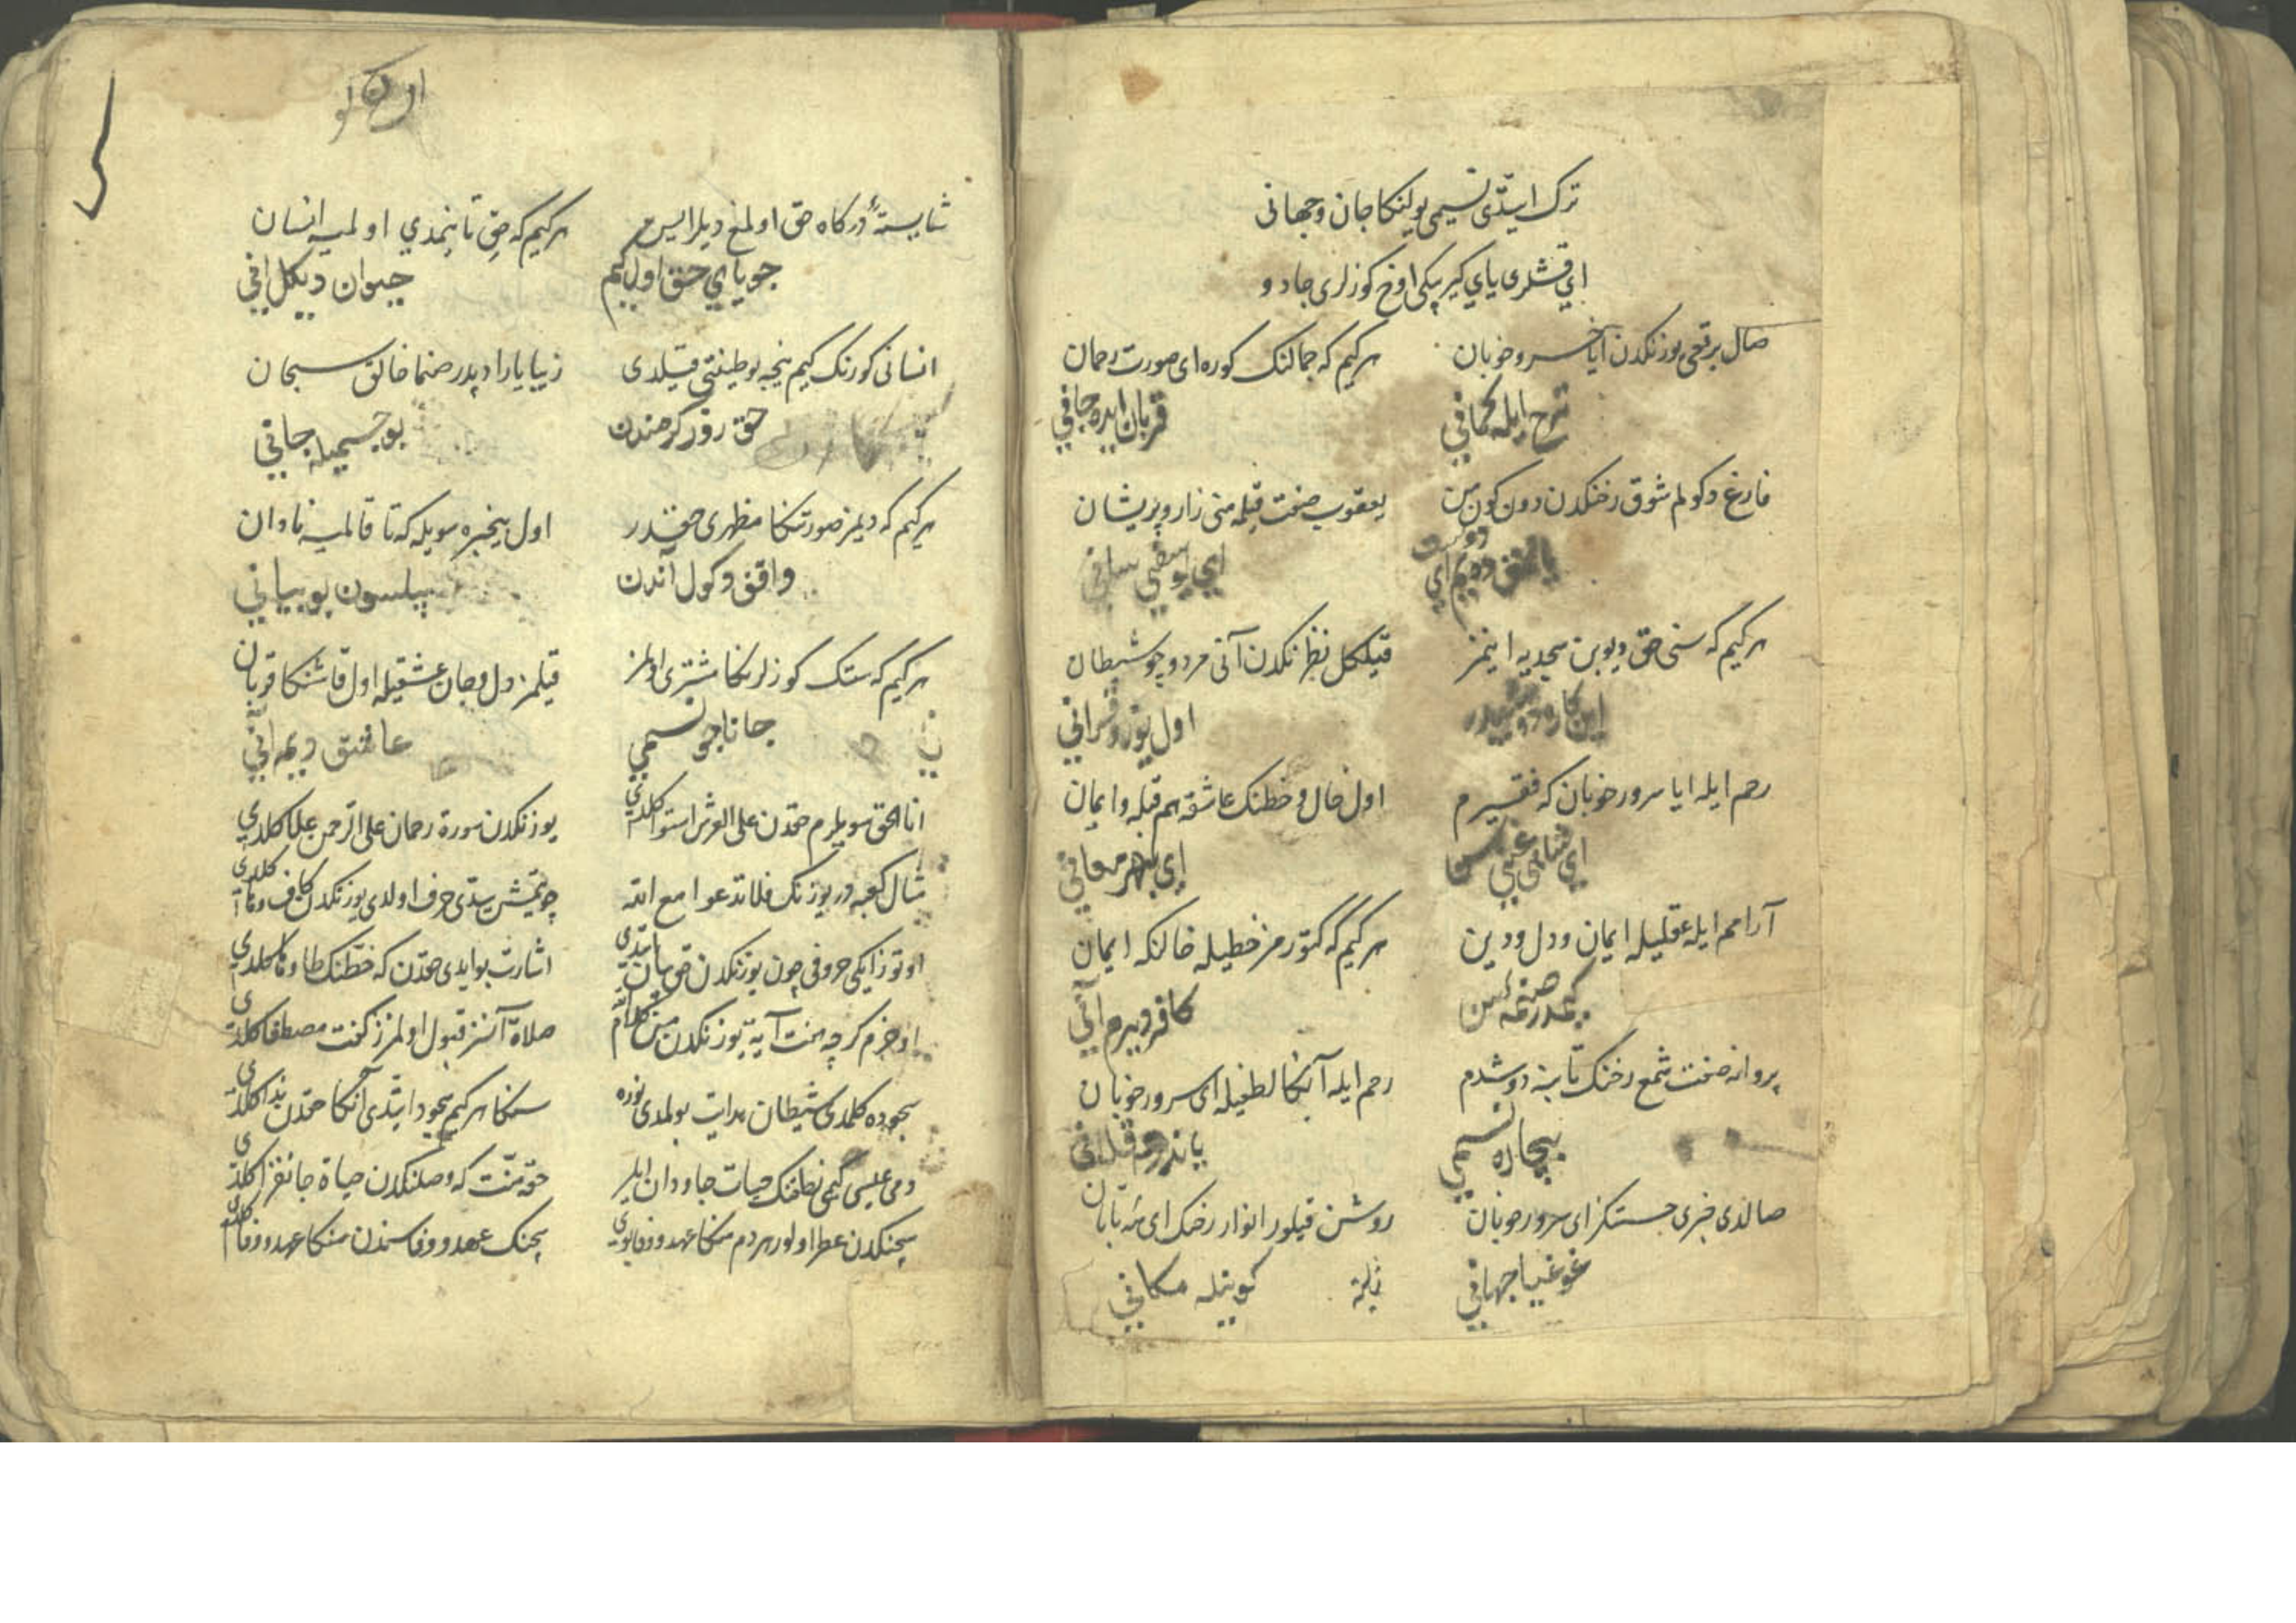 ترک ایتدی نسیمی یولنکا جان و جهانی
ای قشلری یای کیرپیکی اوخ کوزلری جادو
صال برقعی یوزنکدن ایا خسرو خوبان هر کیم که جمالنک کوره ای صورت رحمان
شرح ایله قربان ایده جانی
فارغ دکولم شوق رخنکدن دون کون من یعقوب صفت قیلمه منی زار و پریشان
دوست
ای یوسف ثانی
هر کیم که سنی حق دیوبن سجدیه اینمز قیلکل نظرنکدن آنی مردود چو شیطان
اول یوزی قرانی
رحم ایله ایا سرور خوبان که فقیرم اول خال و خطنک عاشقه هم قبله و ایمان
ای بحر معانی
آرامم ایله عقلیله ایمان و دل و دین هر کیم که کتورمز خطیله خالنکه ایمان
کافر دیرم آنی
پروانه صفت شمع رخنک تابنه دوشدم رحم ایله آنکا لطفیله ای سرور خوبان
بیچاره نسیمی یاندرمه قیل انی
صالدی خبری حسنکز ای سرور خوبان روشن قیلور انوار رخنک ای مه تابان
غوغیا جهانی کوینله مکانی
شایستهٔ درکاه حق اولمغ دیلر ایسن هر کیم که حقی تانیمدی اولمیه انسان
جویای حق اول کیم حیوان دیکل انی
انسانی کورنک کیم نیجه بو طینتی قیلدی زیبا یارادیدر صنما خالق سبحان
حق روز کرمندن بو جسمیله جانی
هر کیم که دیمز صورتنکا مظهری حقدر اول بیخبره سویله که تا قالمیه نادان
واقف دکول آندن بیلسون بو بیانی
هر کیم که سنک کوزلرنکا مشتری اولمز قیلمز دل و جان عشقیله اول قاشنکا قربان
جانا چو نسیمی عاشق دیمه انی
انا الحق سویلرم حقدن علی العرش استوا کلدی یوزنکدن سورة رحمان علی الرحمن علما کلدی
مثال کعبه در یوزنک فلا تدعوا مع الله چو یتمش یدی حرف اولدی یوزنکدن کاف و ها کلدی
اوتوز ایکی حروفی چون یوزنکدن حق بیان ایتدی اشارت بو ایدی حقدن که خطنک طا و ها کلدی
اوخرم کرچه هفت آیة یوزنکدن من کلام الله صلاة آنسز قبول اولمز ز کفت مصطفا کلدی
سجوده کلمدی شیطان هدایت بولمدی نوره سنکا هر کیم سجود ایتدی آنکا حقدن ندا کلدی
دمی عیسی کیمی نطقنک حیات جاودان ایلر حقه منت که وصلنکدن حیاة جانفزا کلدی
سچنکدن عطر اولور هر دم منکا عهد و وفا بوی سچنک عهد و وفاسندن منکا عهد و وفا کلدی